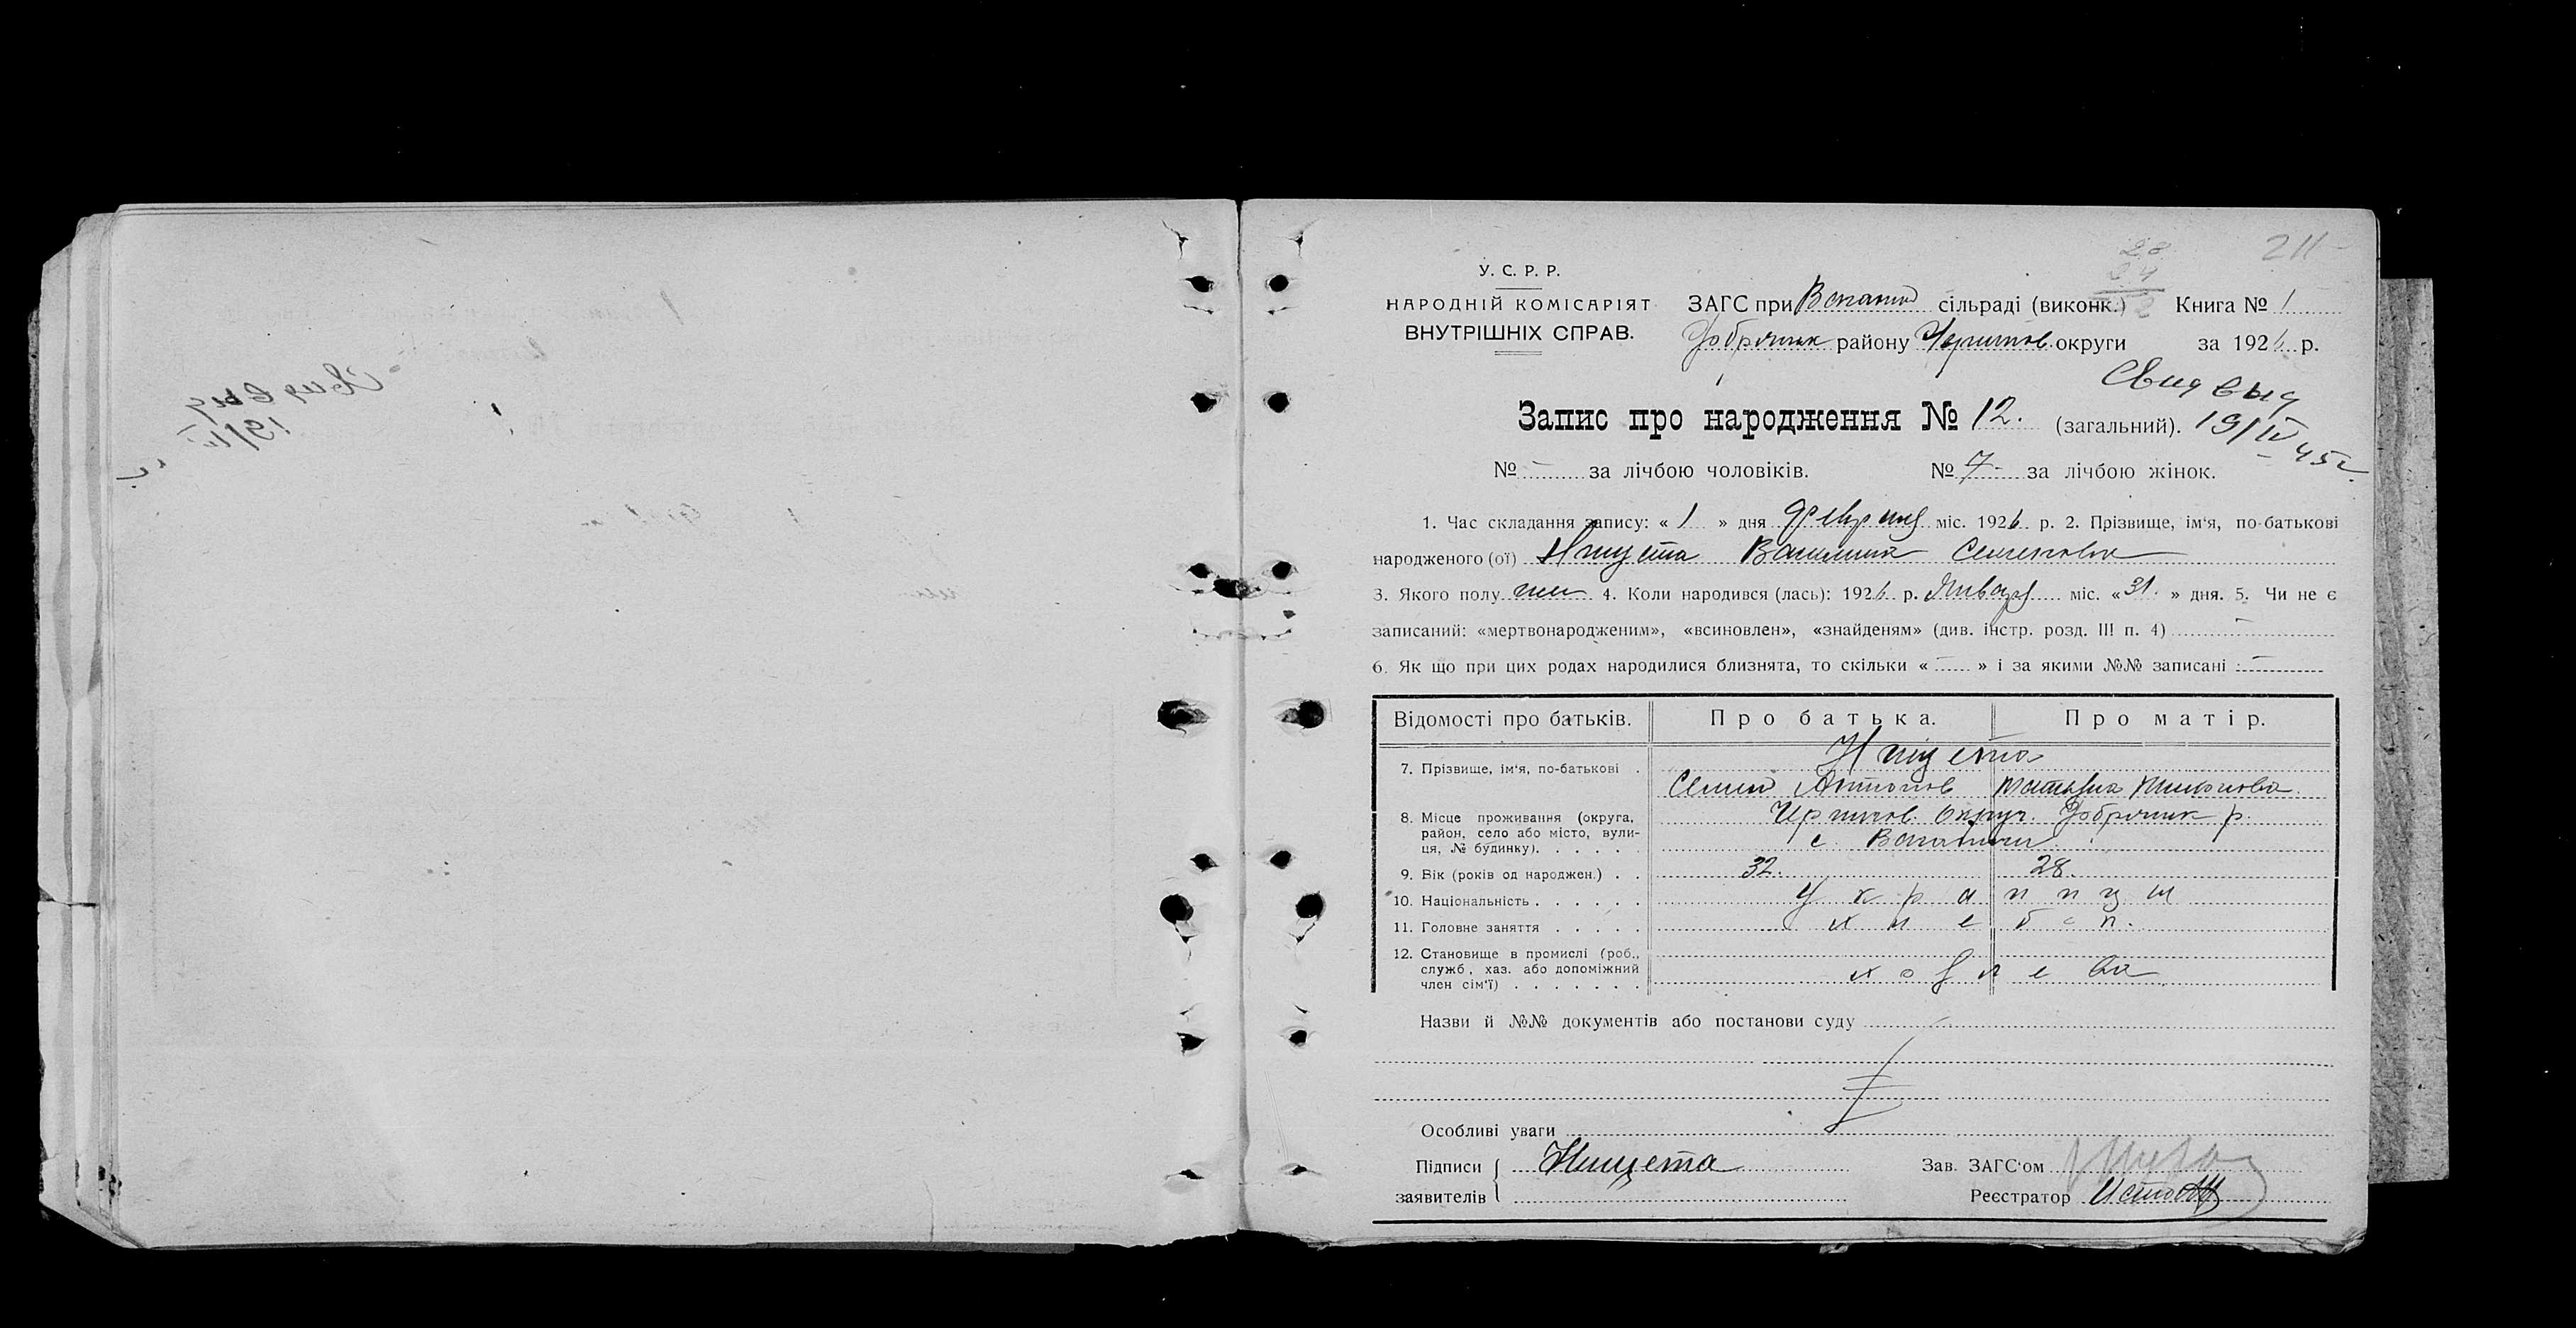 211
28
24
У. С. Р. Р.
НАРОДНІЙ КОМІСАРІЯТ
ВНУТРІШНІХ СПРАВ.
ЗАГС при сільраді (виконк.) Книга № 1
району округи за 1926 р.
Свид выд
19/IV 45г.
Запис про народження № 12. (загальний).
№ - за лічбою чоловіків. № 7 - за лічбою жінок.
1. Час складання запису: « 1 » дня февраля міс. 1926 р. 2. Прізвище, ім'я, по-батькові
народженого (ої) Нищета Василина Семенова
3. Якого полу жен 4. Коли народився (лась): 1926 р. Января міс. «31.» дня. 5. Чи не є
записаний: «мертвонародженим», «всиновлен», «знайденям» (див. інстр. розд. III п. 4) -
6. Як що при цих родах народилися близнята, то скільки « - » і за якими №№ записані : -
Відомості про батьків. Про батька. Про матір.
7. Прізвище, ім'я, по-батькові . Нищета
Семен Антонов Татьяна
8. Місце проживання (округа, район, село або місто, вулиця, № будинку). . . . . Округ. р.
с.
9. Вік (років од народжен.) . . 32. 28.
10. Національність . . . . . . украинцы
11. Головне заняття . . . . . хлебоп.
12. Становище в промислі (роб., служб., хаз. або допоміжний член сім'ї) . . . . . . .
Назви й №№ документів або постанови суду
Особливі уваги
Підписи заявителів { Нищета
Зав. ЗАГС'ом
Реєстратор